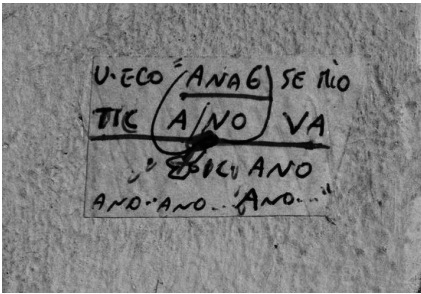 U·ECO "ANAG) SE MIO
TIC A/NO VA
ANO
ANO··ANO...."ANO...."